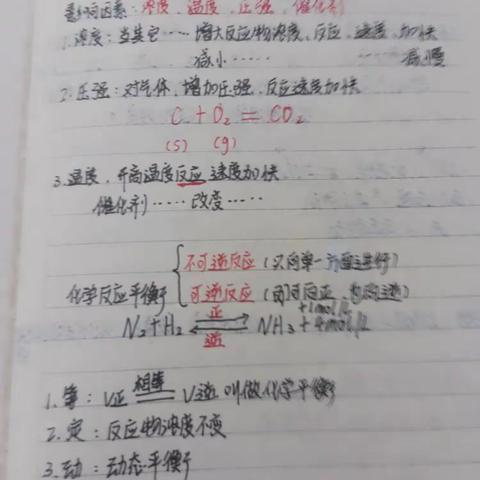 影响因素：浓度、温度、压强、催化剂
1.浓度：当其它……增大反应物浓度、反应、速度、加快
减小…… …… 减慢
2.压强：对气体，增加压强，反应速度加快
C + O2 = CO2
(s) (g)
3.温度，升高温度反应速度加快
催化剂……改变……
不可逆反应（只向单一方面进行）
化学反应平衡
可逆反应（同时向正，也向逆）
正
N2+H2 ⇌ NH3
逆
1.等：V正 相等 V逆 叫做化学平衡
2.定：反应物浓度不变
3.动：动态平衡